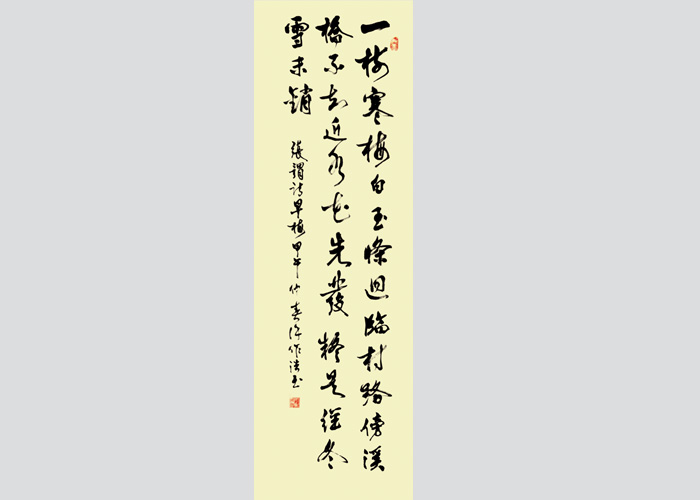 一树寒梅白玉條迴臨村路傍溪
橋不知近水花先發疑是經冬
雪未銷
張謂詩早梅甲午仲春作书